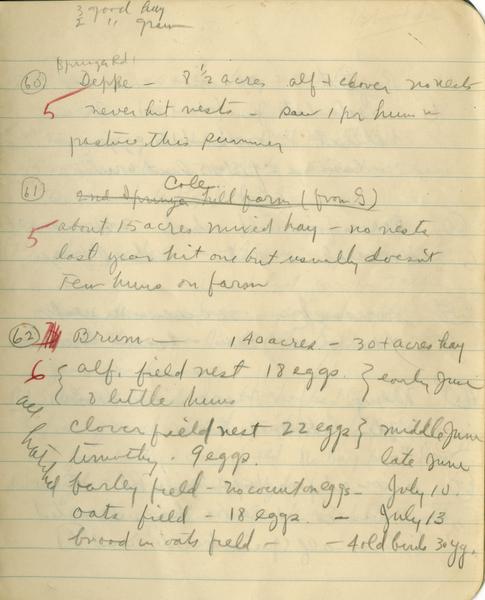 3 good hay
2 " grain
Springer Rd.
(60) Deppe - 8 1/2 acres alf + clover no nests
5 never hit nests - saw 1 pr huns in
pasture this summer
(61) Cole
2nd Springer hill farm (from G)
5 about 15 acres mixed hay - no nests
last year hit one but usually doesn't
Few huns on farm
(62) Brum - 140 acres - 30+ acres hay
6 { alf. field nest 18 eggs. } early June
{ 8 little huns
clover field nest 22 eggs } middle June
timothy. 9 eggs. late June
all hatched
barley field - no count on eggs - July 10.
oats field - 18 eggs. - July 13
brood in oats field - - 4 old birds 30 yg.